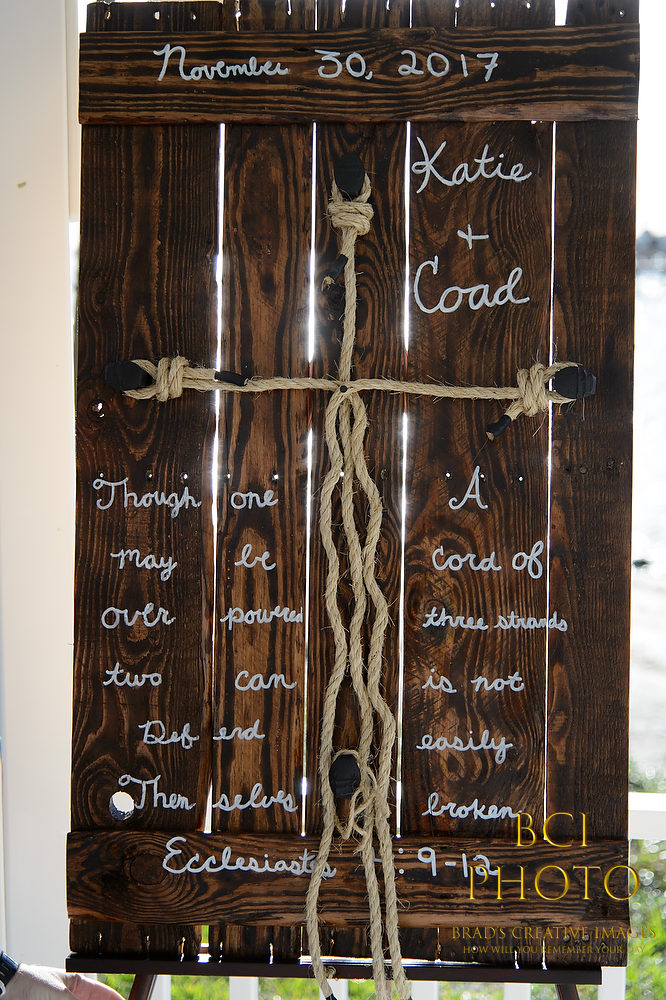 November 30, 2017
Katie
+
Coad
Though one
may be
over powered
two can
Def end
Then selves
A
cord of
three strands
is not
easily
broken.
Ecclesiastes 4:9-12
BCI
PHOTO
BRAD'S CREATIVE IMAGES
HOW WILL YOU REMEMBER YOUR DAY